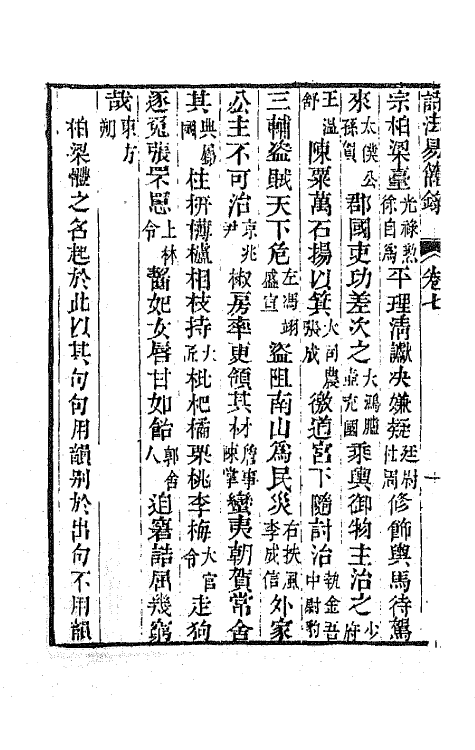 詩法易簡錄 卷七 十
宗柏梁臺光祿勲徐自爲平理清讞决嫌疑廷尉杜周修飾輿馬待駕
來太僕公孫賀郡國吏功差次之大鴻臚壺充國乘輿御物主治之少府
王溫舒陳粟萬石揚以箕大司農張成徼道宮下隨討治執金吾中尉豹
三輔盜賊天下危左馮翊盛宣盜阻南山爲民災右扶風李成信外家
公主不可治京兆尹椒房率更領其材詹事陳掌蠻夷朝賀常舍
其典屬國柱枅欂櫨相枝持大匠枇杷橘栗桃李梅大官令走狗
逐兔張罘罳上林令齧妃女唇甘如飴郭舍人迫窘詰屈幾窮
哉東方朔
柏梁體之名起於此以其句句用韻别於出句不用韻